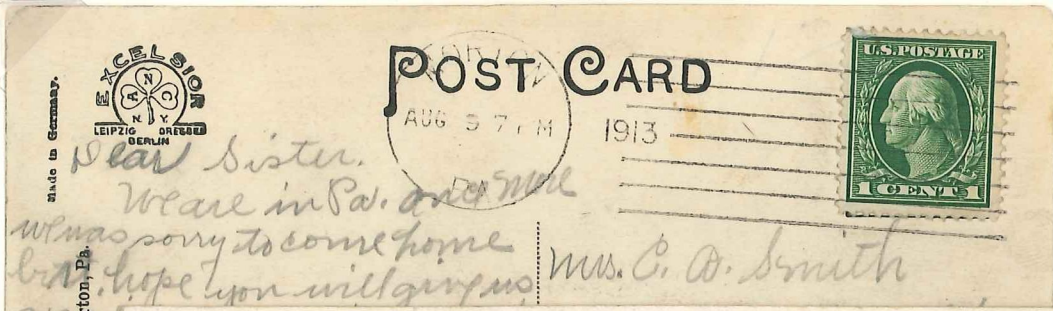 Made in Germany.
EXCELSIOR
A N C
N.Y.
LEIPZIG DRESDEN
BERLIN
POST CARD
AUG 9 7 PM
1913
PA
U.S. POSTAGE
1 CENT 1
Dear Sister.
We are in Pa. once more
we was sorry to come home
but hope you will give us
Mrs. C. D. Smith
rton, Pa.